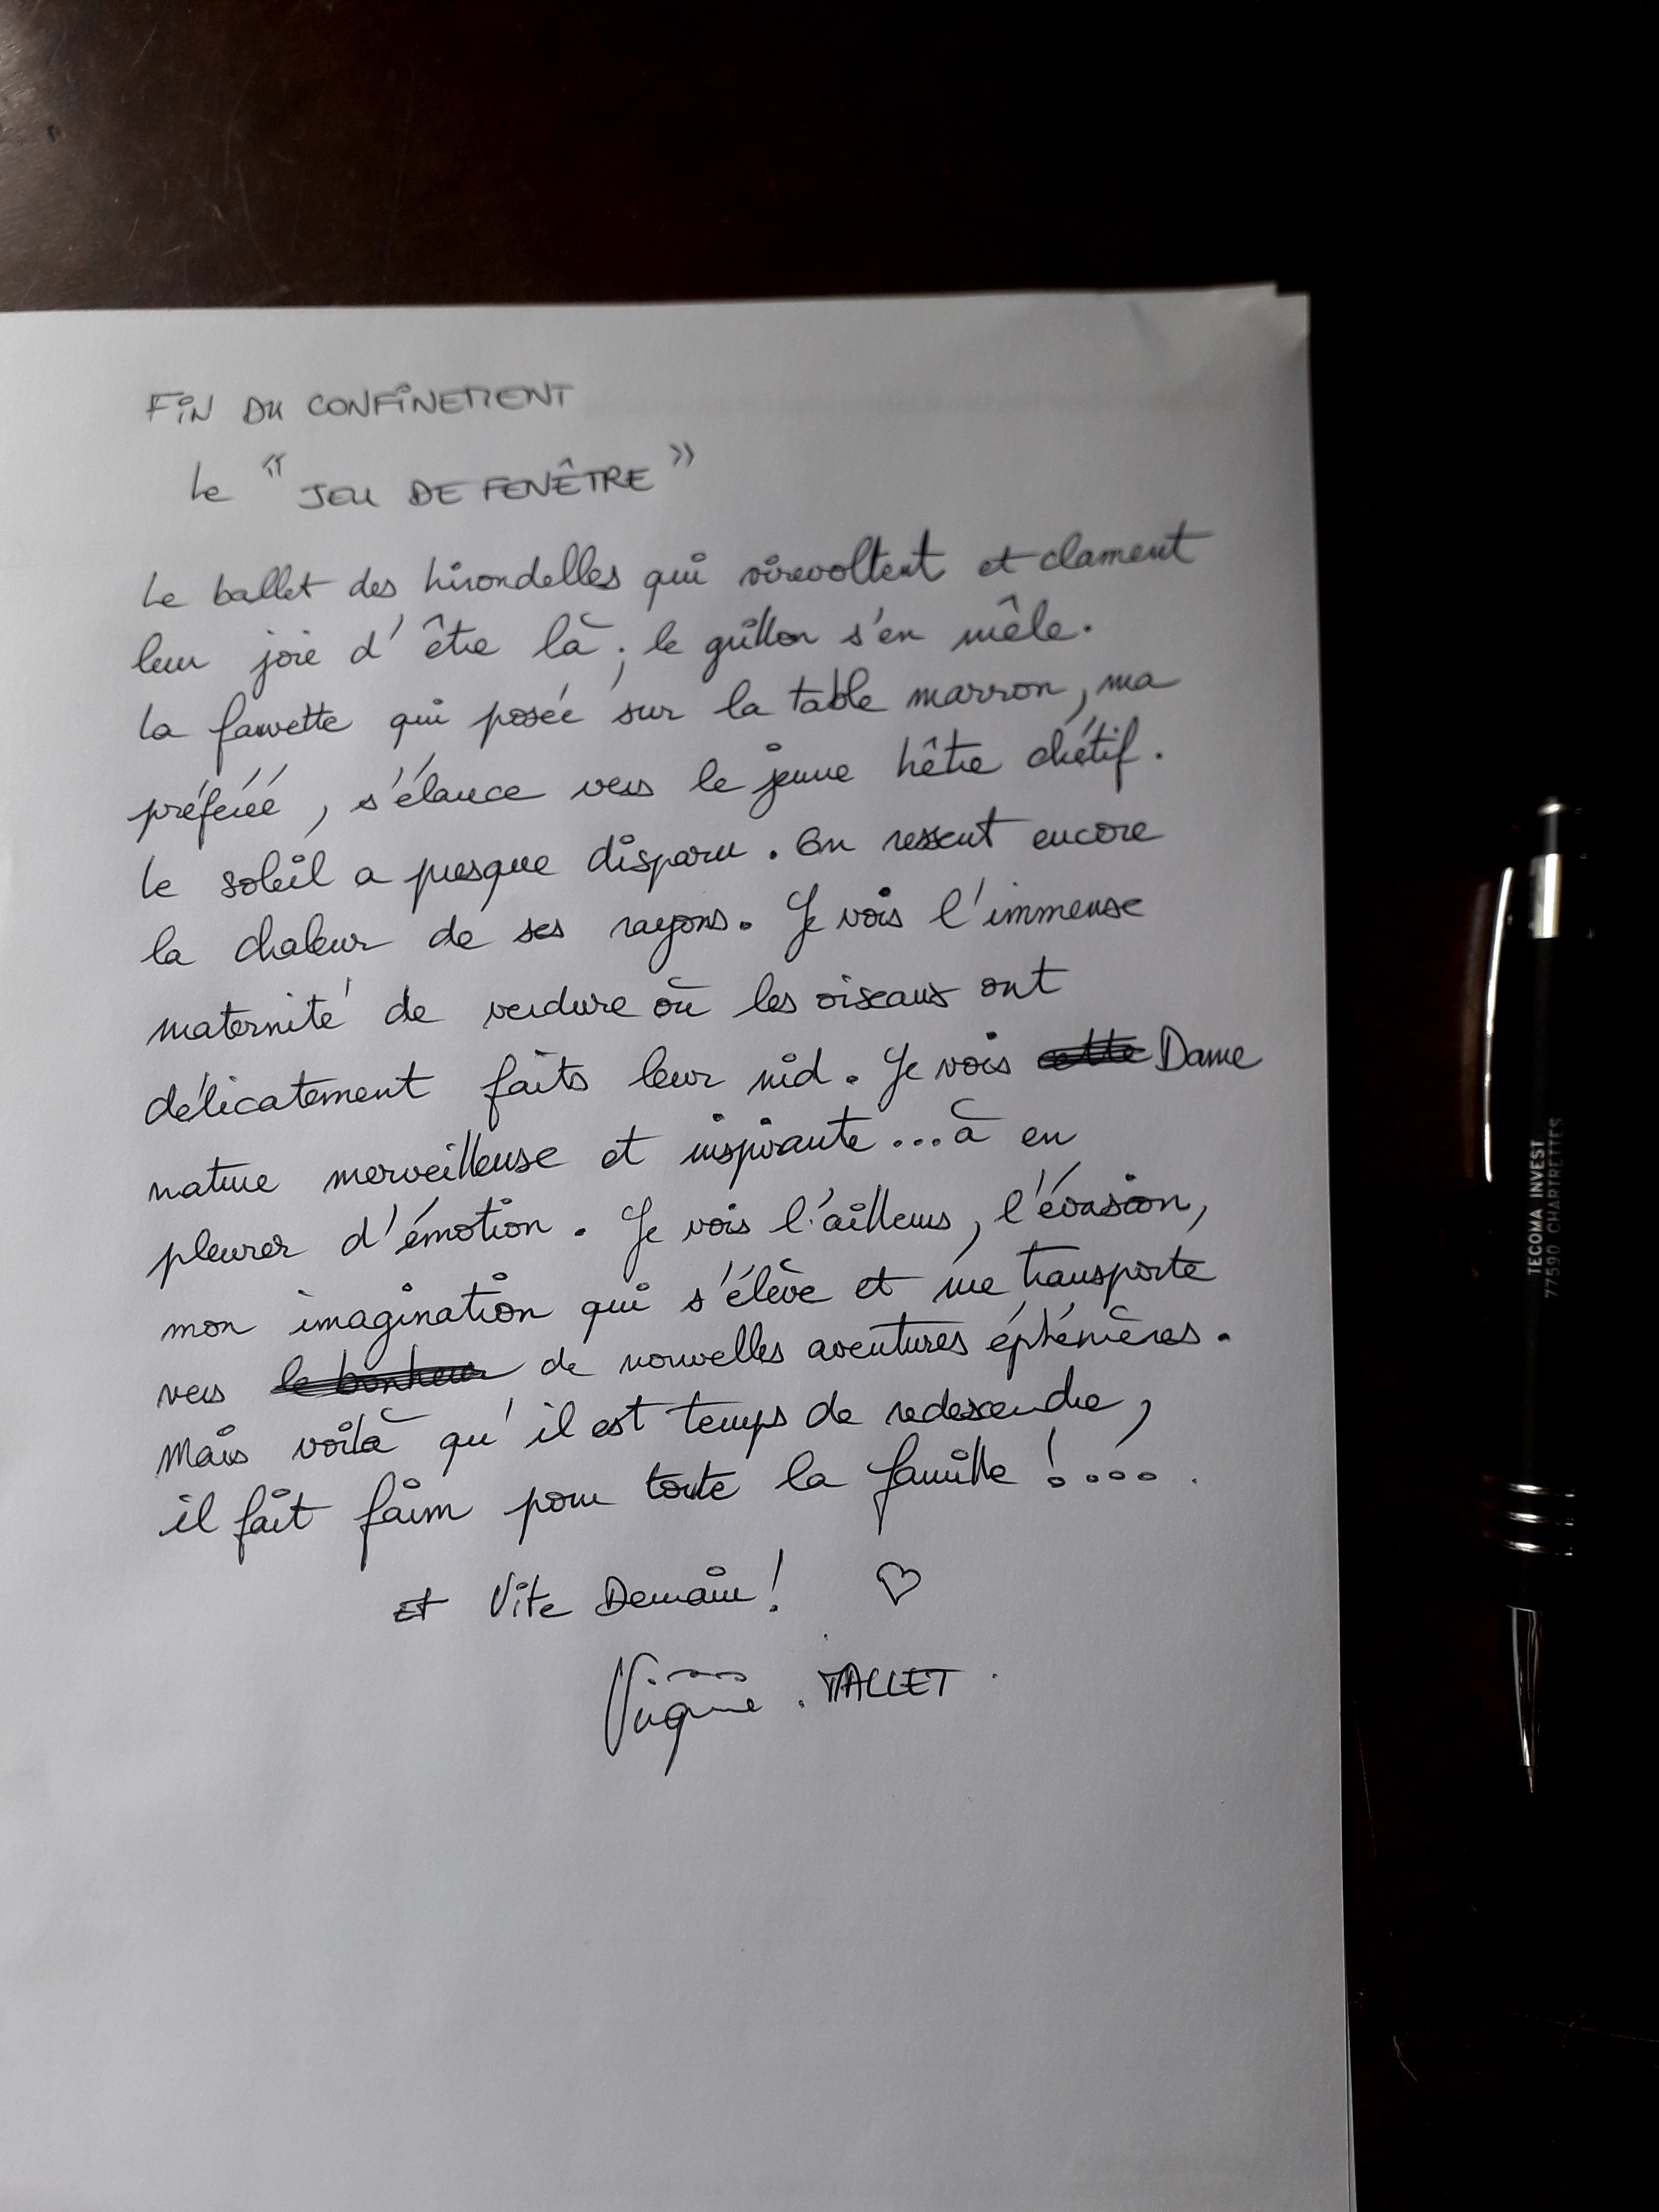 FIN DU CONFINEMENT
Le "JEU DE FENÊTRE"
Le ballet des hirondelles qui virevoltent et clament
leur joie d'être là ; le grillon s'en mêle.
La fauvette qui posée sur la table marron, ma
préférée, s'élance vers le jeune hêtre chétif.
Le soleil a presque disparu. On ressent encore
la chaleur de ses rayons. Je vois l'immense
maternité de verdure où les oiseaux ont
délicatement faits leur nid. Je vois cette Dame
nature merveilleuse et inspirante...à en
pleurer d'émotion. Je vois l'ailleurs, l'évasion,
mon imagination qui s'élève et me transporte
vers le bonheur de nouvelles aventures éphémères.
Mais voilà qu'il est temps de redescendre,
il fait faim pour toute la famille !....
Et Vite Demain ! ♡
Virginie . TALLET .
TECOMA INVEST
77590 CHARTRETTES